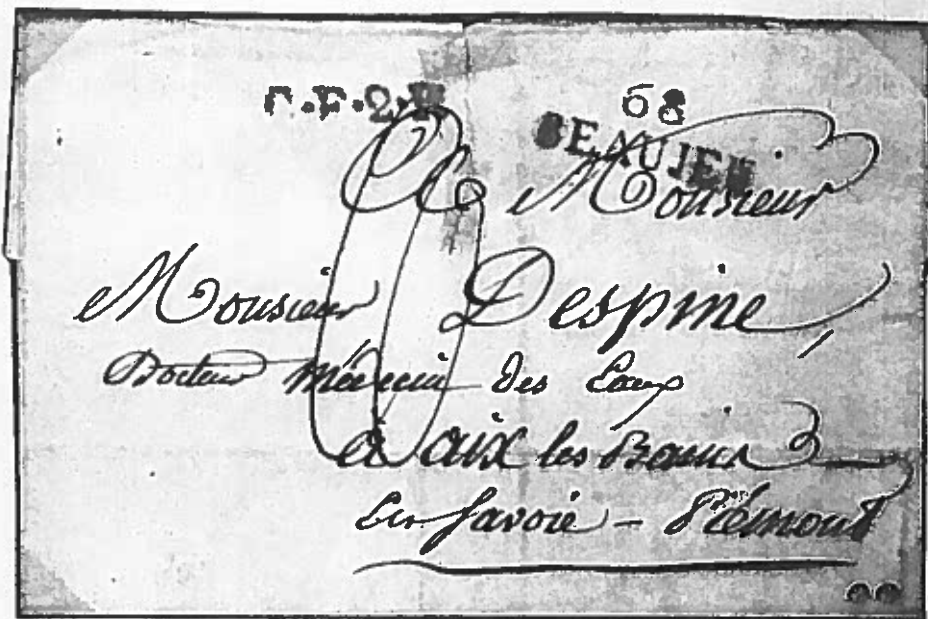 68
BEAUJEU
A Monsieur
Monsieur Despine,
Docteur Médecin des Eaux
à aix les Bains
En Savoie - Piémont